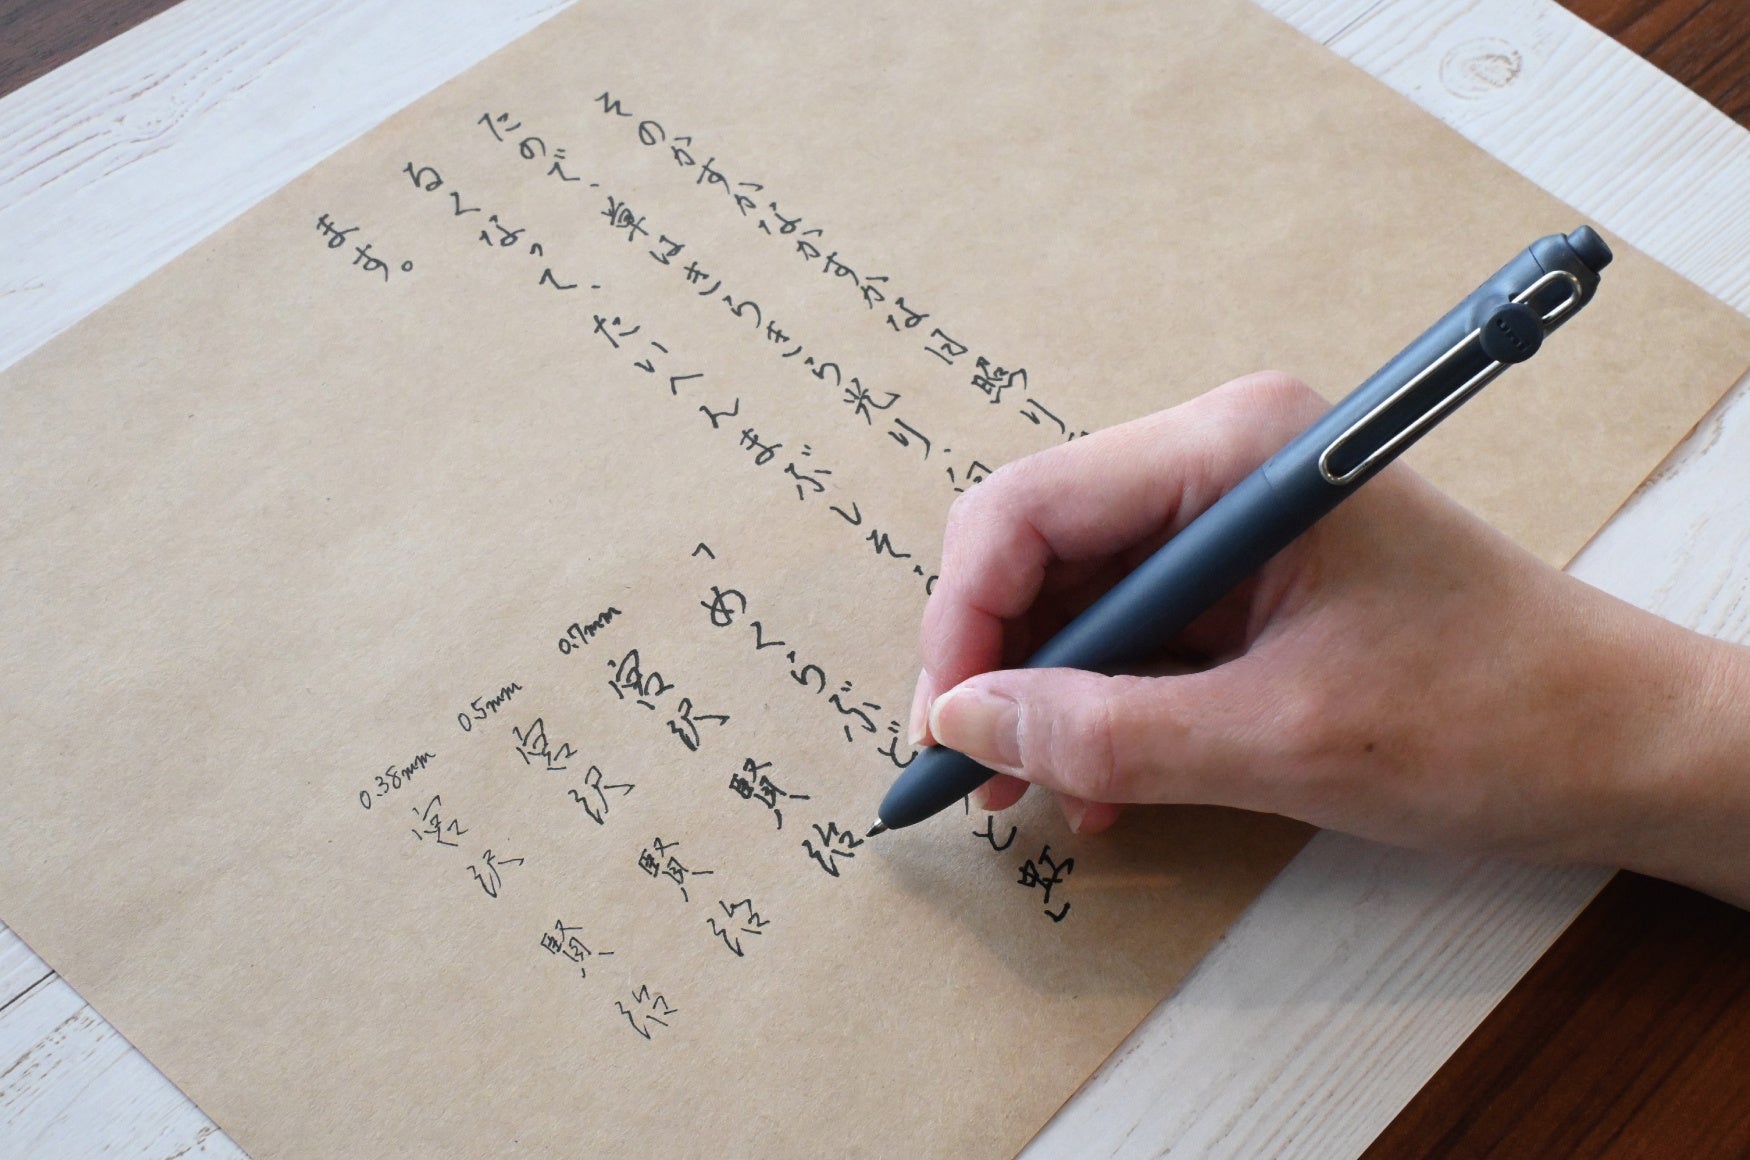 そのかすかなかすかな日照り
たので、草はきらきら光り、向
るくなって、たいへんまぶしそう
ます。
「めくらぶど と虹」
0.7mm 宮沢賢治
0.5mm 宮沢賢治
0.38mm 宮沢賢治
uni